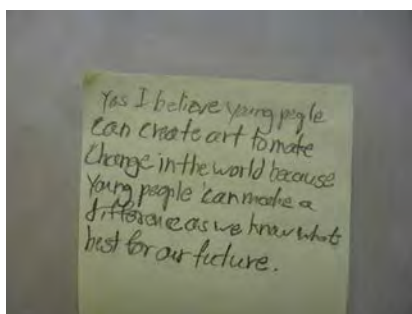 Yes I believe young people
can create art to make
Change in the world because
Young people can make a
difference as we know whats
best for our future.